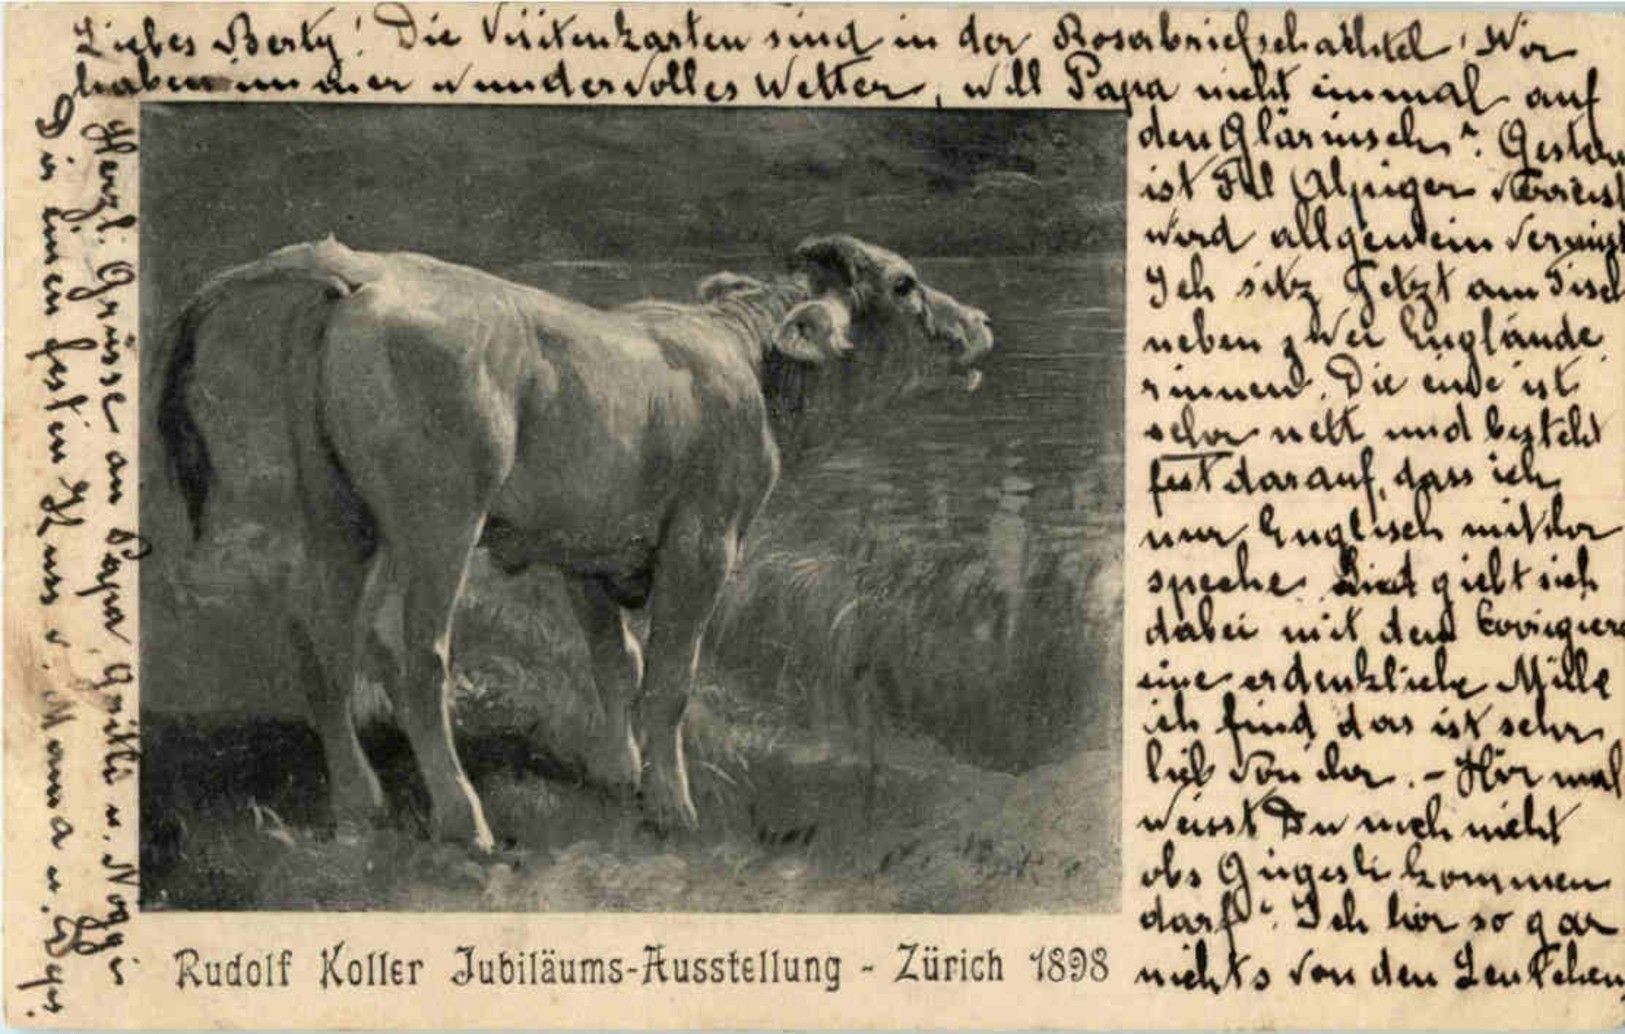 Liebes Berty! Die Visitenkarten sind in der Rosabriefschachtel! Wir
haben immer wundervolles Wetter, will Papa nicht einmal auf
den Glärnisch? Gestern
ist Frl Alpiger verreist
wird allgemein vermisst
Ich sitz Jetzt am Tisch
neben zwei Englände
rinnen. Die eine ist
sehr nett und besteht
fest darauf, dass ich
nur Englisch mit ihr
speche giebt sich
dabei mit dem Corrigiere
eine erdenkliche Mühe
ich find das ist sehr
lieb von ihr. - Hör mal
weisst Du noch nicht
obs Gügesli kommen
darf? Ich hör so gar
nichts von den Leutchen,
Herzl. Grüsse an Papa, Gritli u. Noggi
Dir einen festen Kuss v. Mama u.
Rudolf Koller Jubiläums-Ausstellung - Zürich 1898